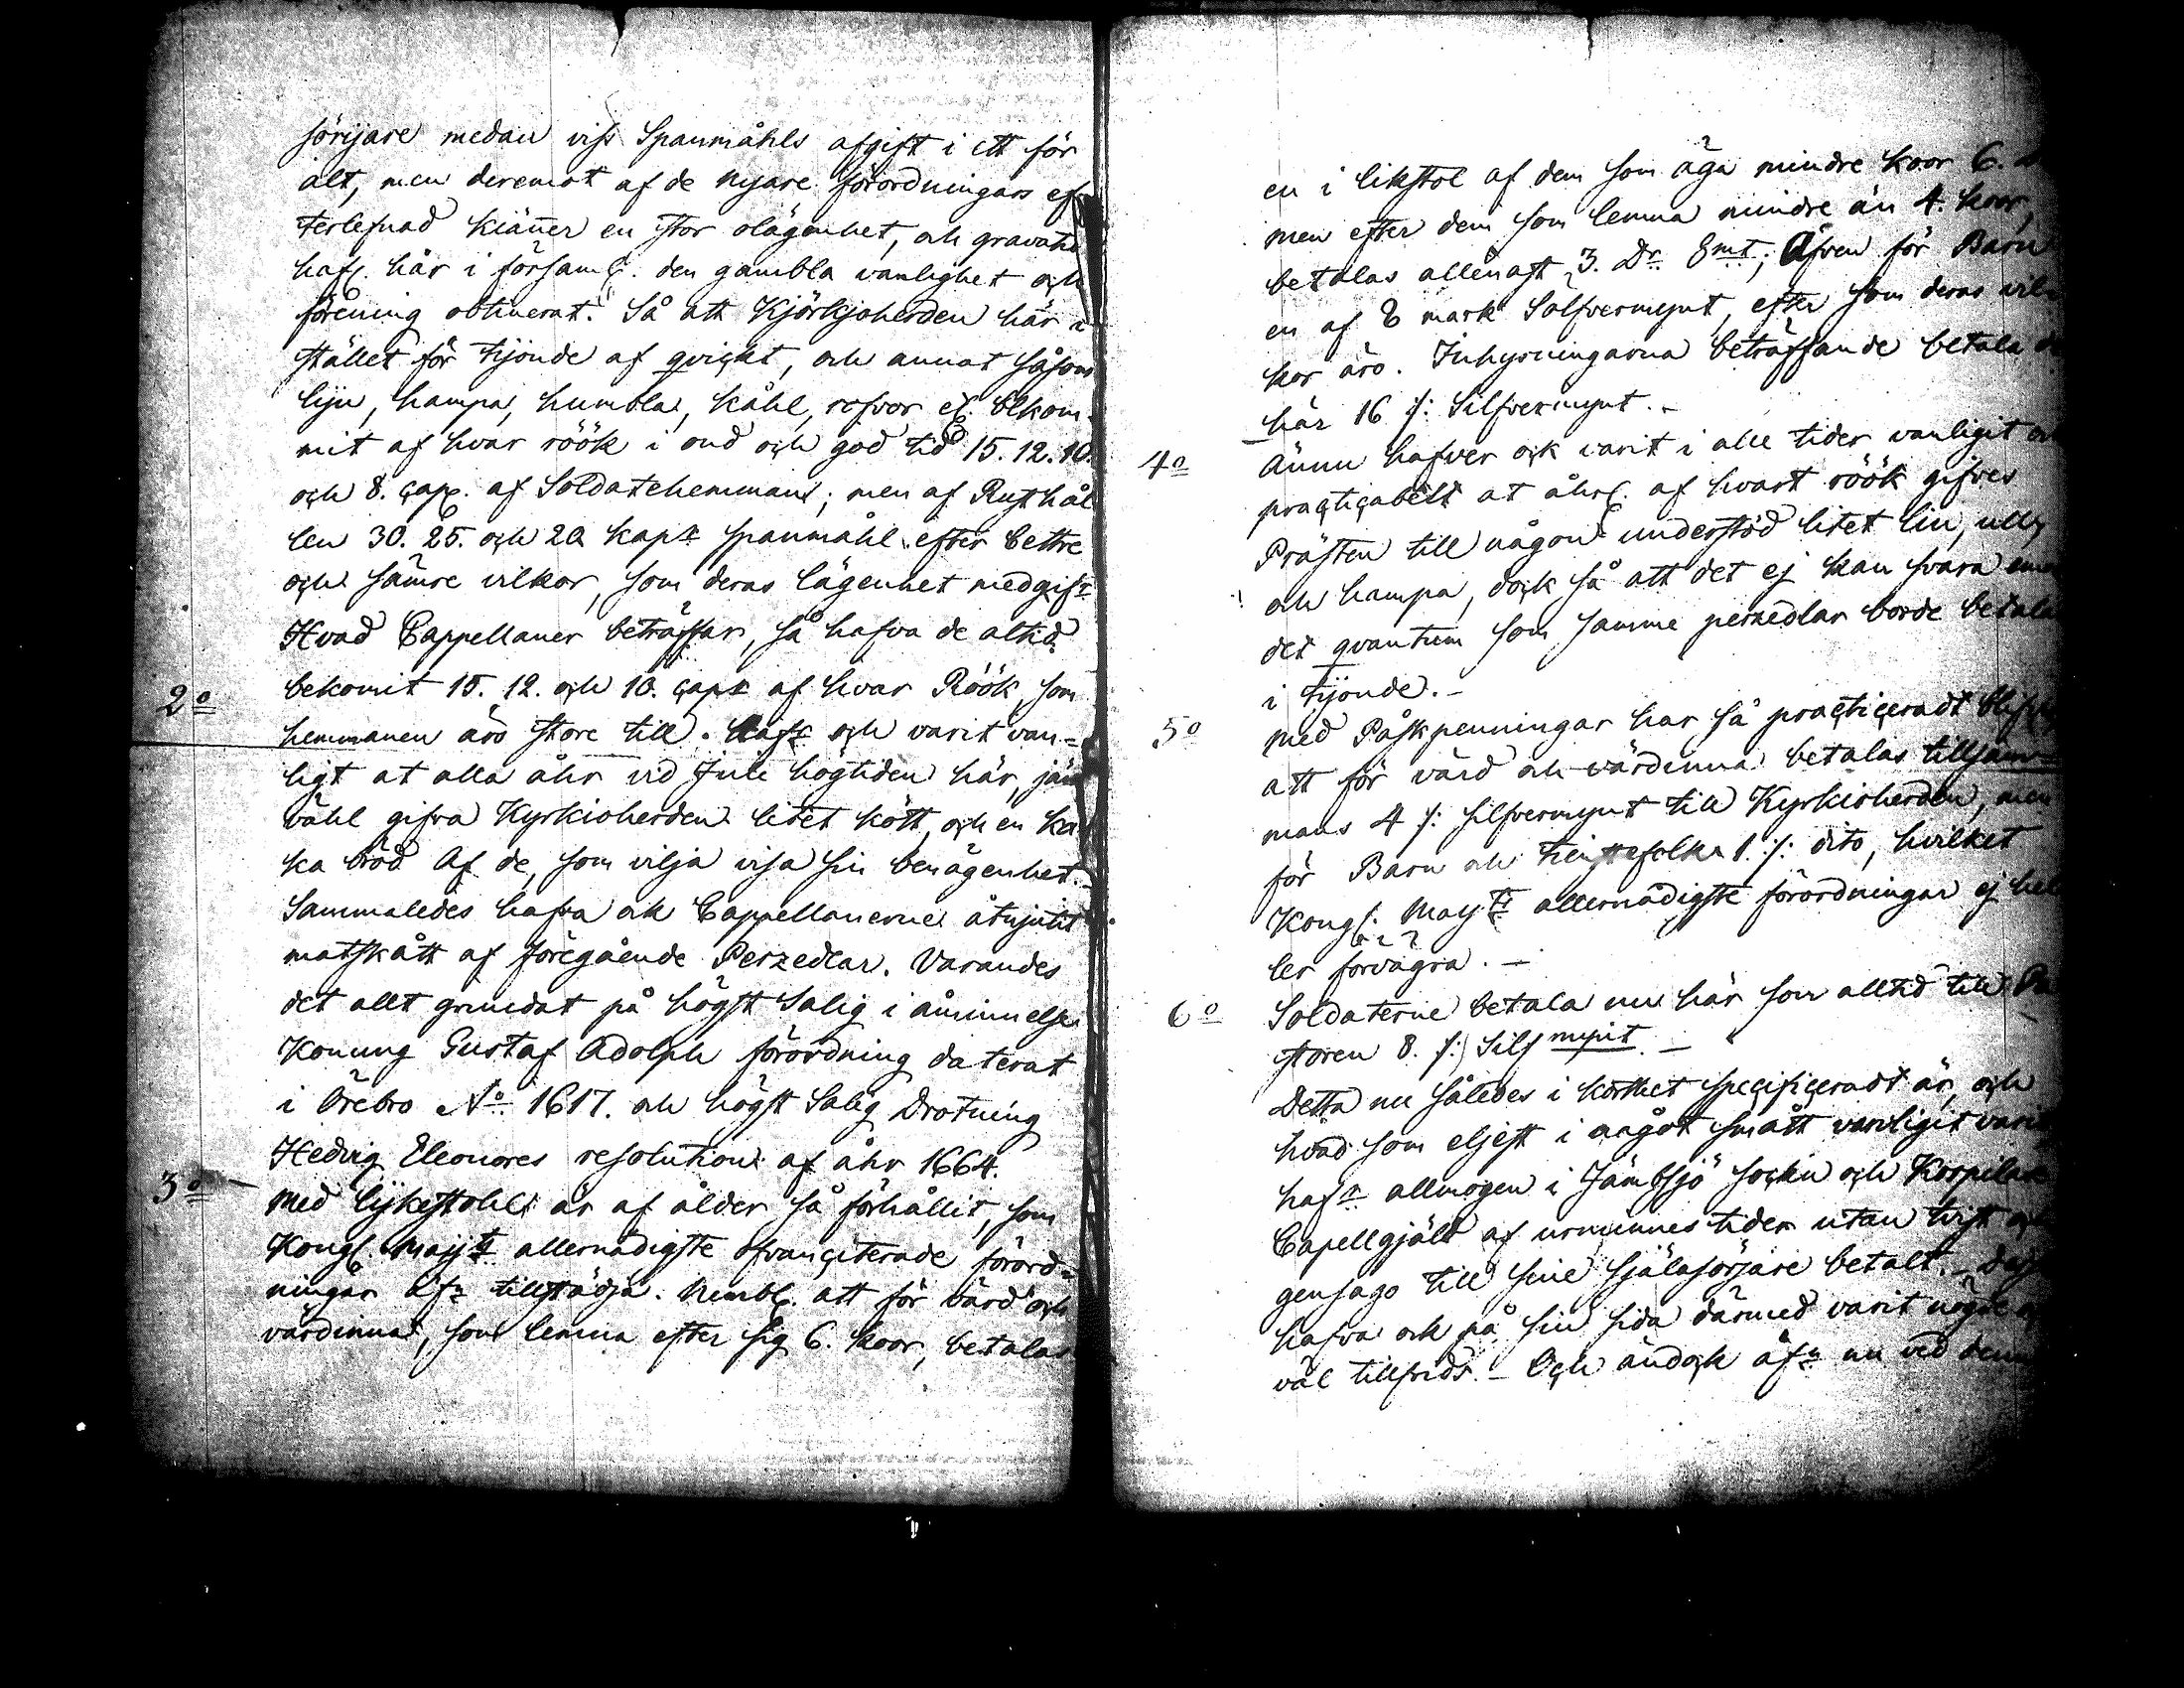 sörijare medan viss Spanmåhls afgift i ett för
alt, men deremot af de nyare förordningars ef
terlefnad kiänner en stor olägenhet, och gravatio
haf. här i församl. den gambla vanlighet och
förening obtinerat. Så att Kjörkjoherden här i
stället för tijonde af qvickt, och annat såsom
lijn, hampa, humbla, kåhl, rofvor &c. bekom-
mit af hvar röök i ond och god tid 15. 12. 10.
och 8. cap. af Soldatehemman; men af Rusthål
len 30. 25. och 20 kapr spanmåhl efter bettre
och sämre vilkor, som deras lägenhet medgifr
Hvad Cappellaner beträffar, så hafva de altid
2o bekomit 15. 12. och 10. capr af hvar Röök, som
hemmanen äro store till. Hafr och varit van-
ligt at alla åhr vid Jule hogtiden här, jäm
vähl gifva Kyrkioherden litet kött, och en ka
ka bröd af de, som vilja visa sin benägenhet.
Sammaledes hafva ok Cappellanerne åtnjutit
matskått af föregående Perzedlar. Varandes
det allt grundat på högst Salig i åminnelse
Konung Gustaf Adolph förordning daterat
i Örebro No 1617. och högst Salig Drotning
Hedvig Eleonores resolution af åhr 1664.
3o Med lijkestohl är af ålder så förhållit, som
Kongl. Mayts allernådigste ofvanciterade förord-
ningar äfr tillstädja. Nembl. att för värd och
värdinna, som lemna efter sig 6. koor, betalas
en i likstol af dem som äga mindre koor 6.
men efter dem som lemna mindre än 4. koor,
betalas allenast 3. Dr Smt; Äfven för Barn
en af 8 mark Solfvermynt, efter som deras vil
kor äro. Inhysningarna beträffande betala
här 16 /: Silfvermynt.-
4o Ännu hafver ock varit i alle tider vanligit och
practicabelt at åhrl. af hvart röök gifves
Prästen till någon understöd litet lin, ull,
och hampa, dock så att det ej kan svara emot
det qvantum som samme perzedlar borde betala
i tijonde.-
5o Med Påskpenningar har så practiceradt
att för värd och värdinna betalas tillsam-
mans 4 /: silfvermynt till Kyrkioherden, men
för Barn och tienstefolk 1. /: dito, hvilket
Kongl. Mayts allernådigste förordningar ej hel
ler forvägra.-
6o Soldaterne betala nu här som alltid till Pa
storen 8. /: Silf mynt.-
Detta nu således i korthet specificeradt är, och
hvad som eljest i något smått vanligit varit
hafr allmogen i Jämbsjö sockn och Korpilax
Capellgjäld af urminnes tider utan tvist och
gensago till sine själasörjare betalt.-
hafva och på sin sida därmed varit nögde
väl tillfreds.- Och ändock äfn nu vid